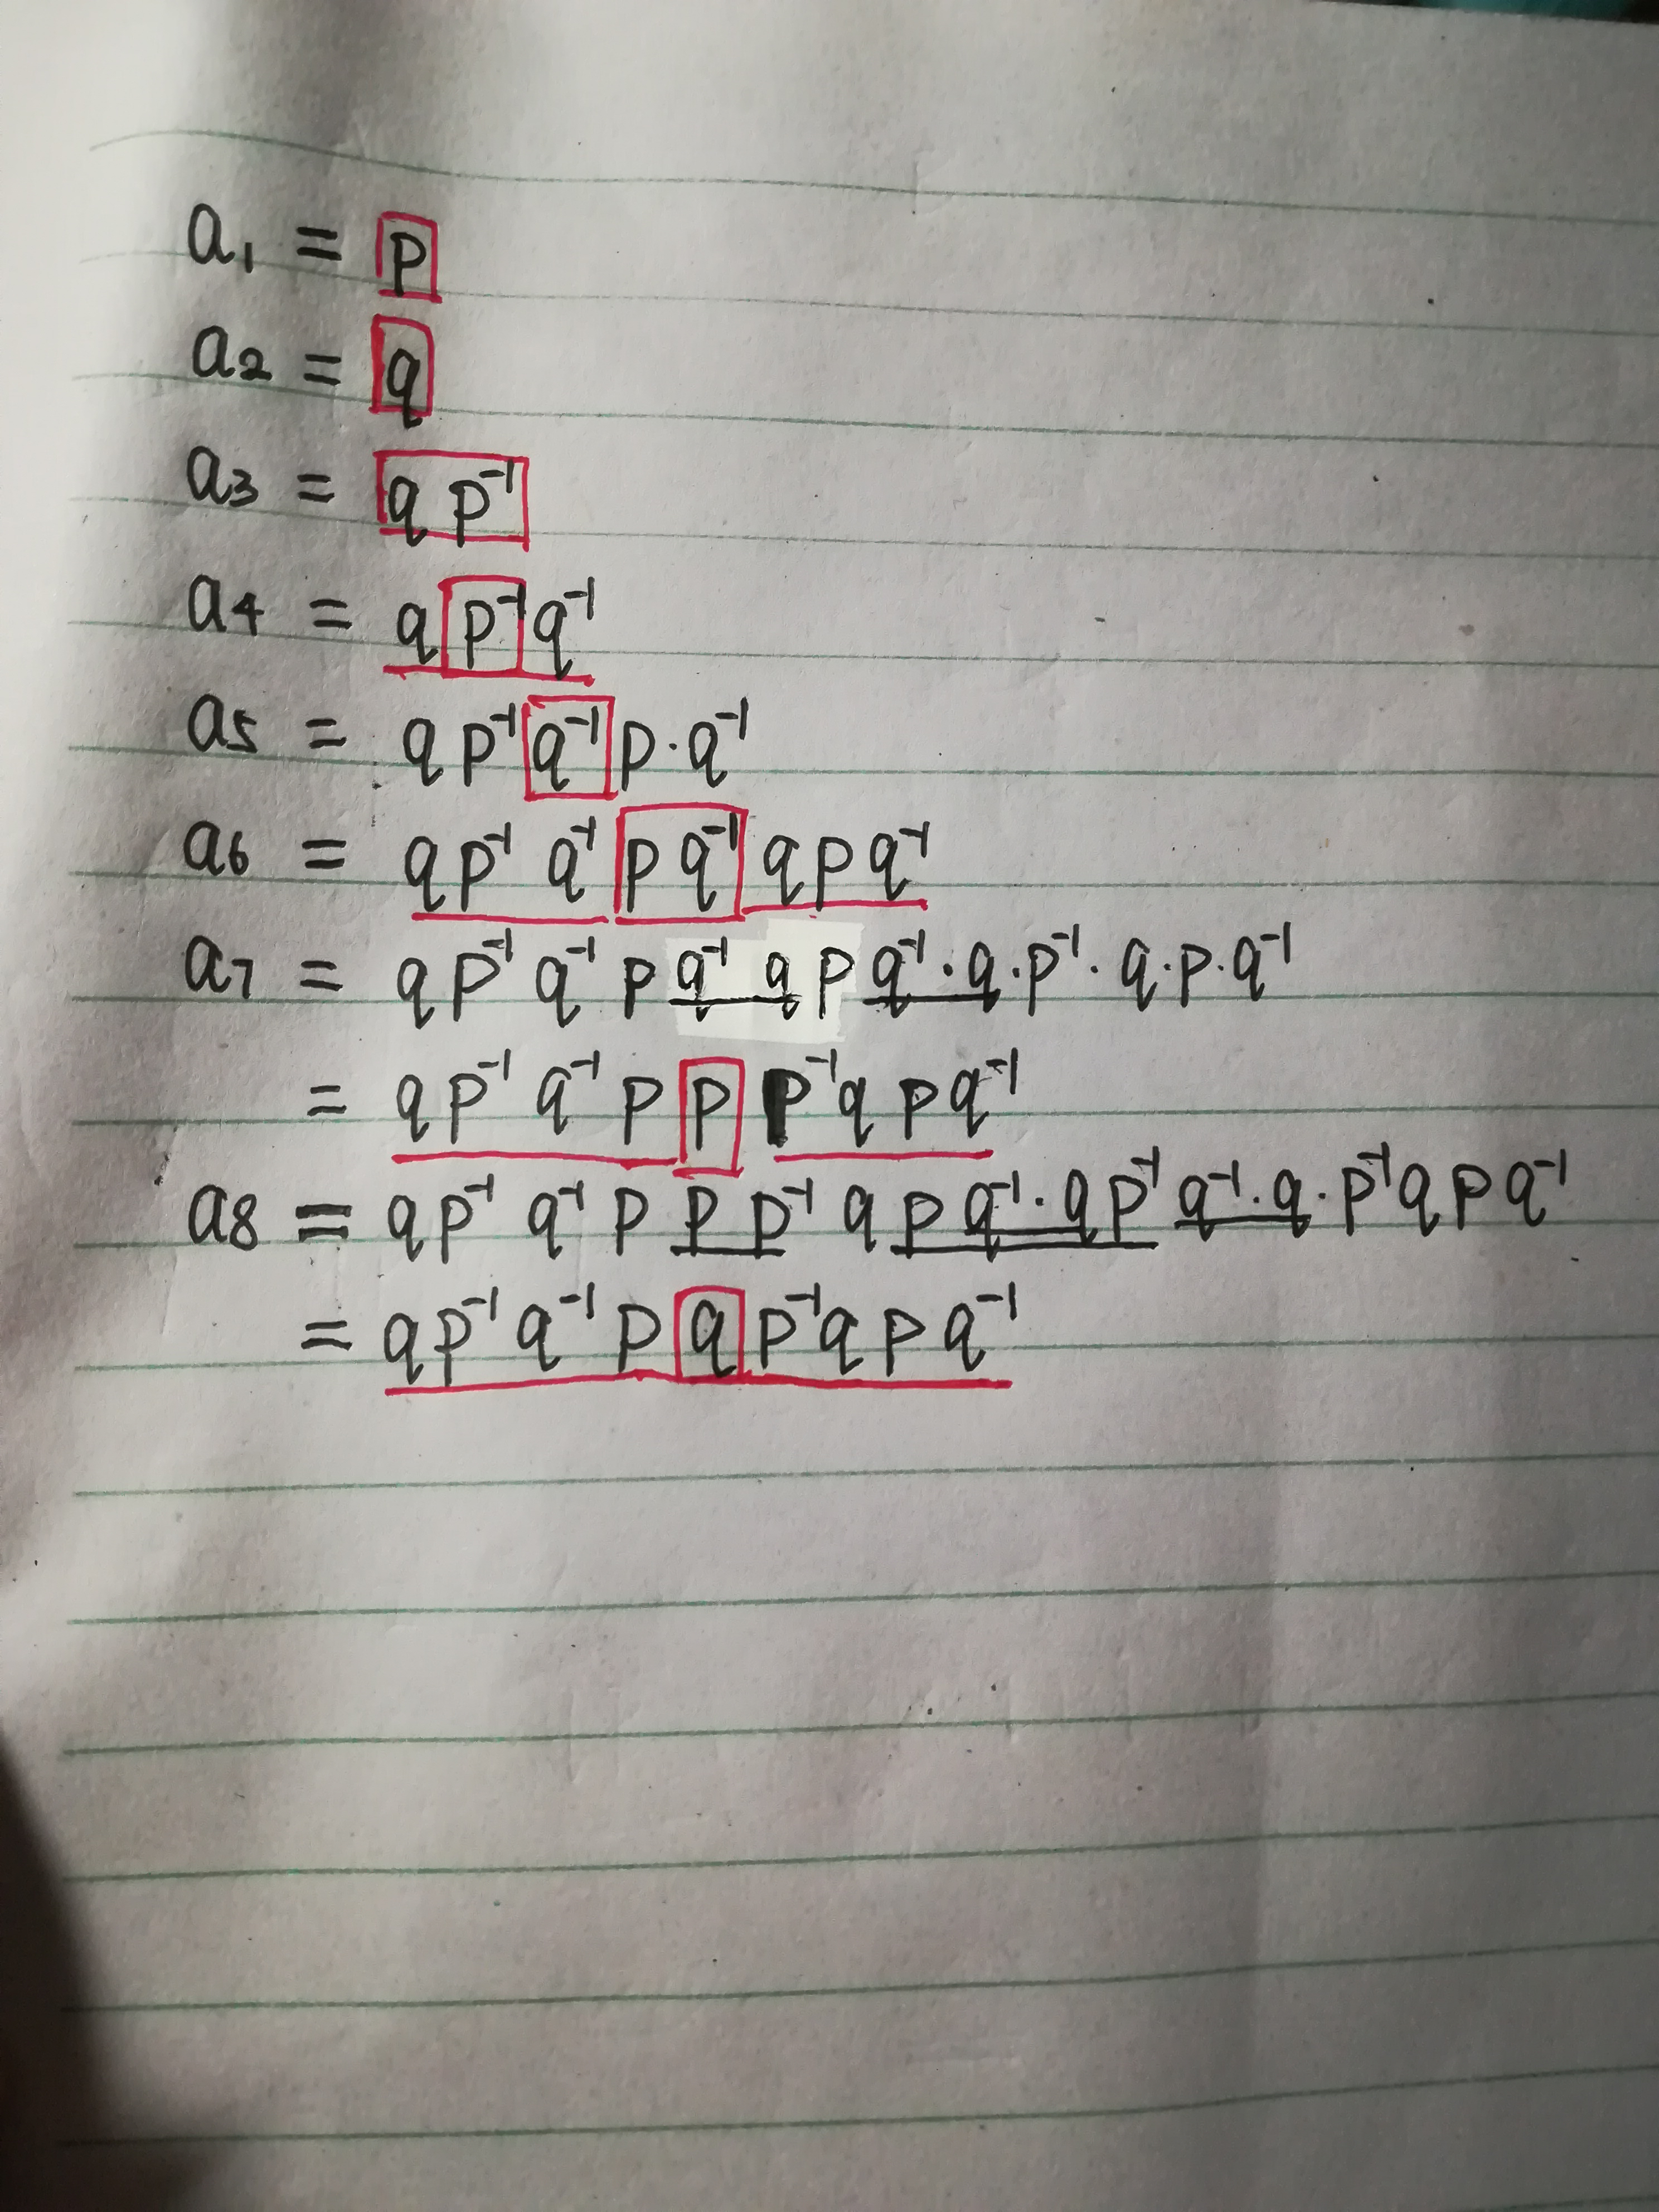 a₁ = p
a₂ = q
a₃ = q p⁻¹
a₄ = q p⁻¹ q⁻¹
a₅ = q p⁻¹ q⁻¹ p · q⁻¹
a₆ = q p⁻¹ q⁻¹ p q⁻¹ q p q⁻¹
a₇ = q p⁻¹ q⁻¹ p q⁻¹ q p q⁻¹ · q · p⁻¹ · q · p · q⁻¹
= q p⁻¹ q⁻¹ p p p⁻¹ q p q⁻¹
a₈ = q p⁻¹ q⁻¹ p p p⁻¹ q p q⁻¹ · q p⁻¹ q⁻¹ · q · p⁻¹ q p q⁻¹
= q p⁻¹ q⁻¹ p q p⁻¹ q p q⁻¹